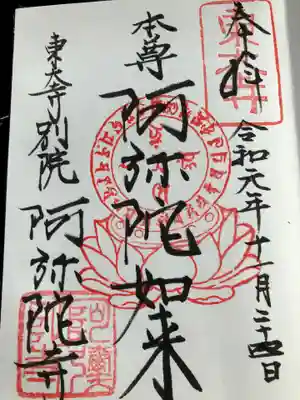 奉拝
令和元年十一月二十四日
本尊
阿弥陀如来
東大寺別院
阿弥陀寺